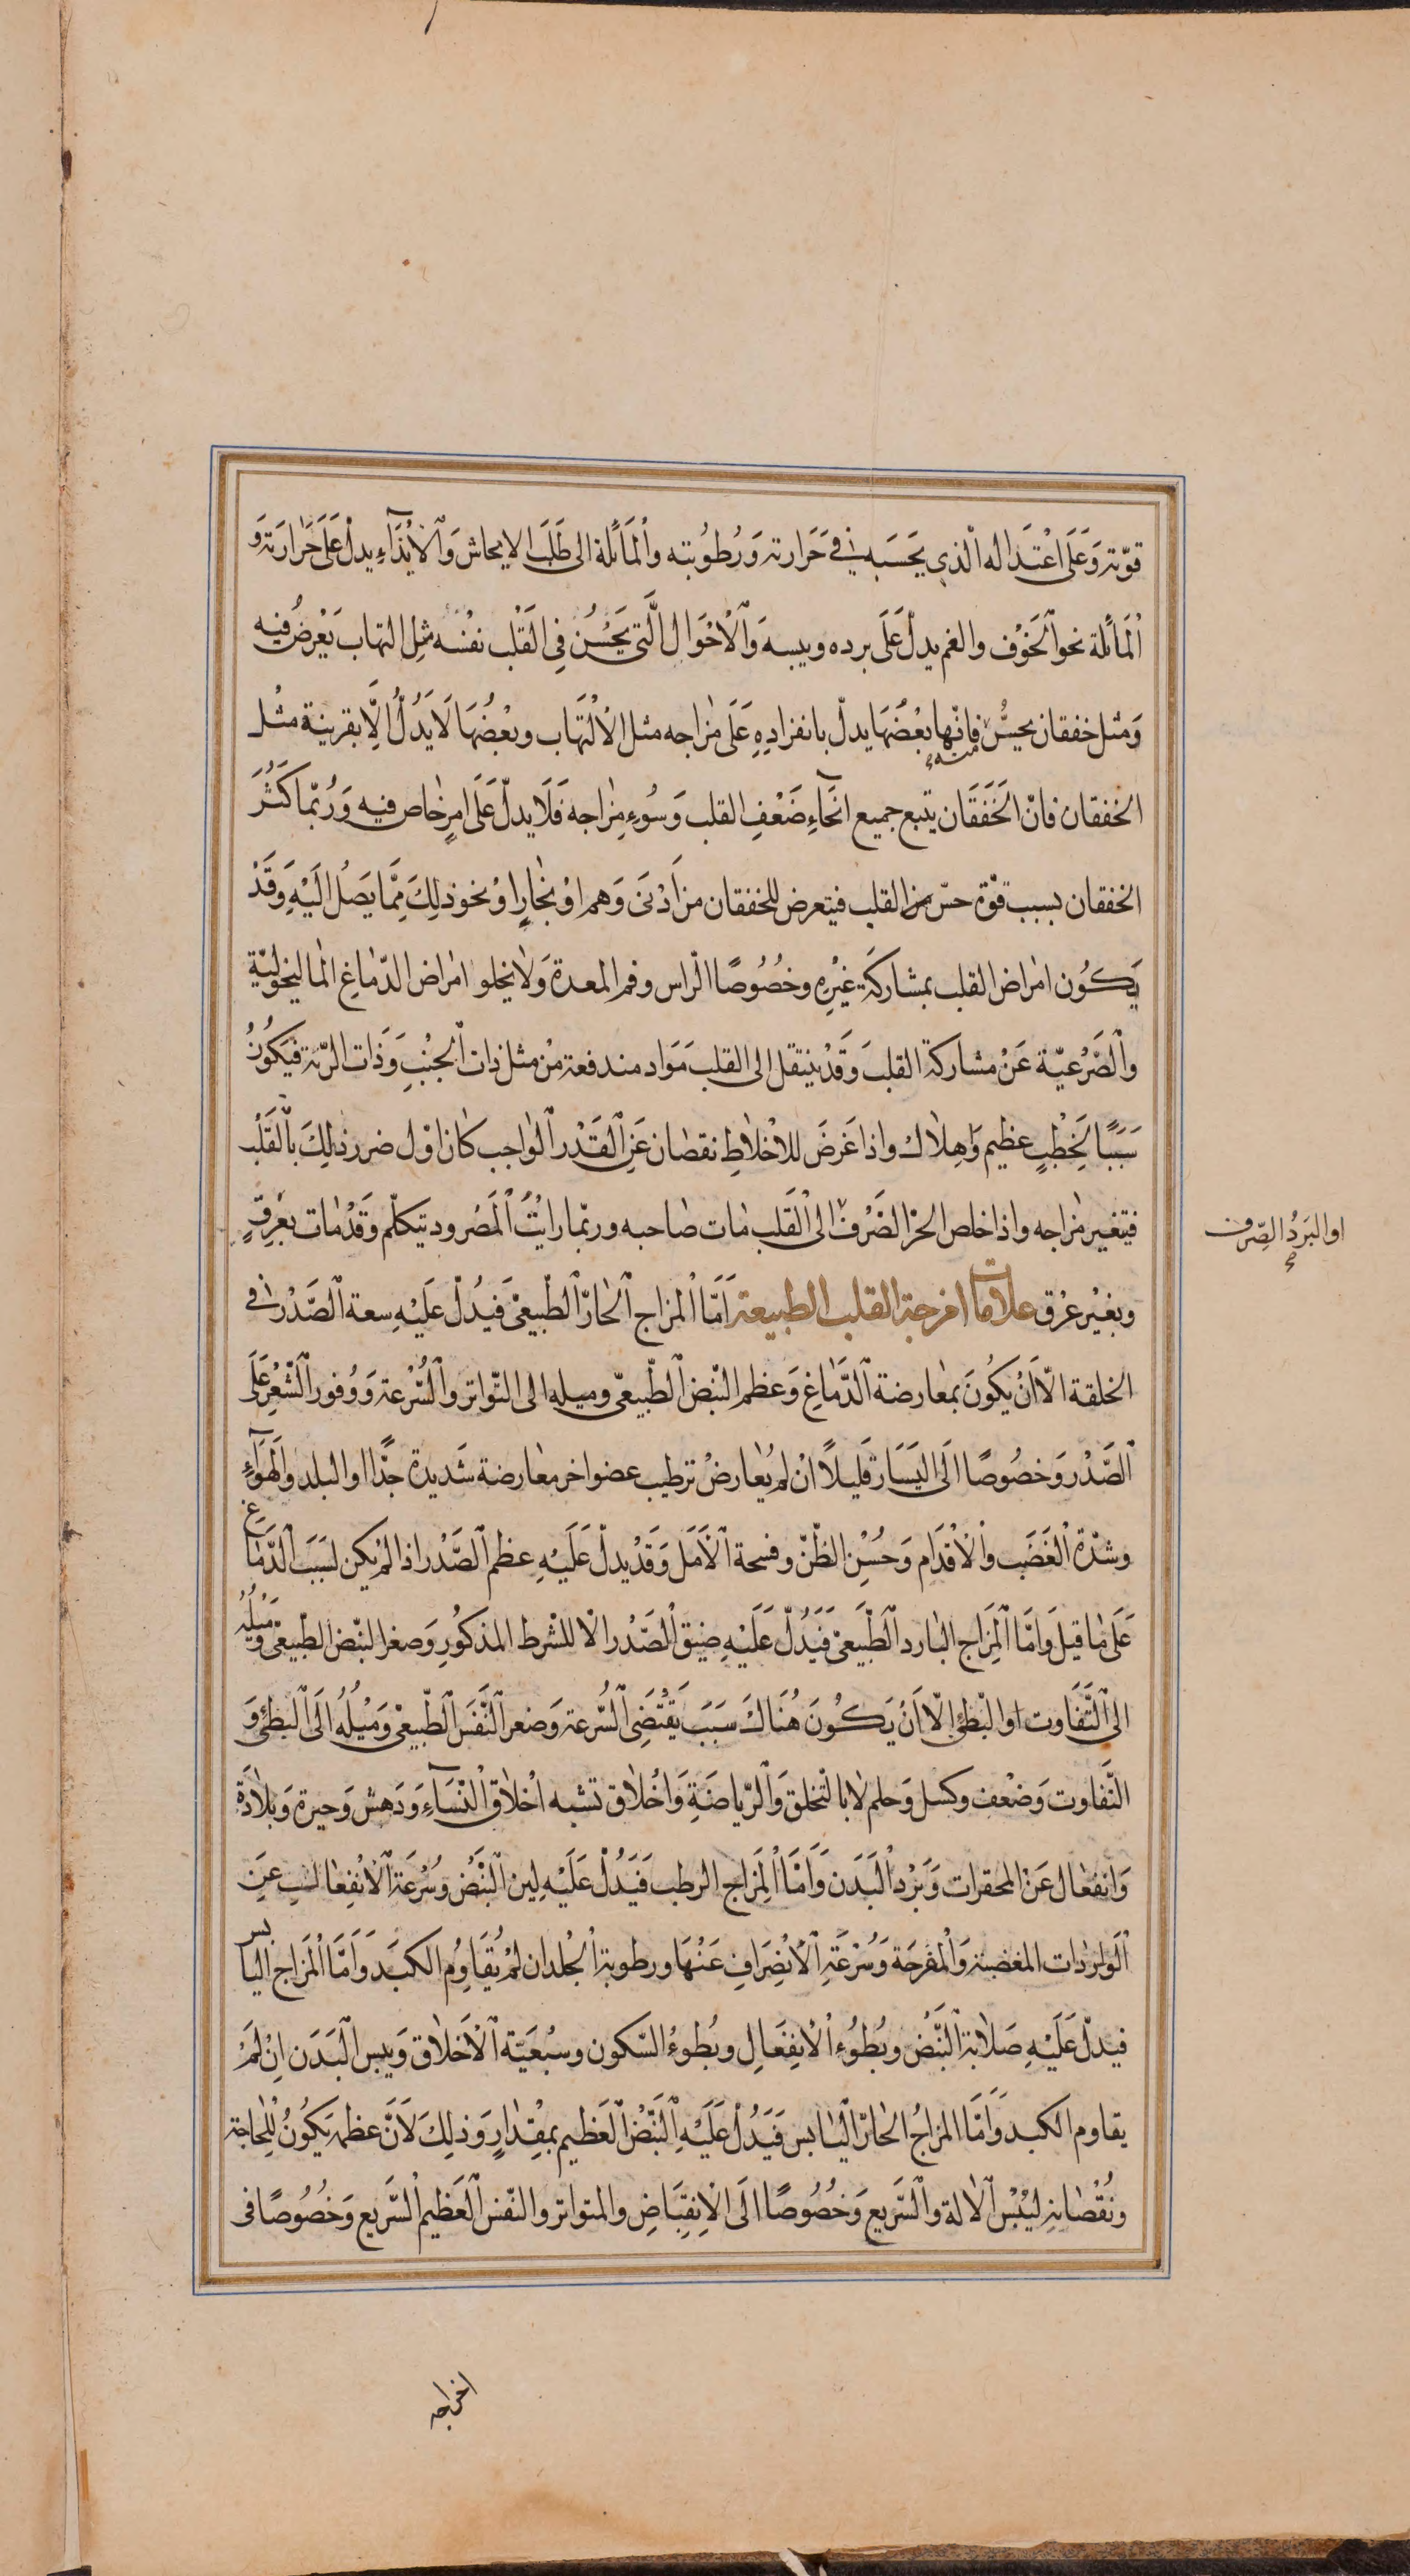 قوّته وَعَلَى اعْتَدَاله الّذي يَحَسَبه في حَرَارته وَرُطُوبته وٱلمَائلة الى طَلَبَ الايحاش وَٱلْايْذَآءِ يدلّ عَلَى حَرٰارَته وَ
ٱلْمَائلة نحو ٱلخَوْف والغم يدلّ عَلَى برده ويبسه وَٱلْاحْوَال الَّتى يَحْسُن فِى القَلْب نفْسه مثِل التهاب يَعْرضُ فيه
وَمثل خفقان يحسُّ فانّها بعْضَهَا يدلّ بانفرَادِهِ عَلَى مٰزاجه مثل الْالْتهَاب وبعْضُهَا لَا يَدُلُّ الّا بقرينة مثْل
الخفقان فانّ الخَفَقَان يتبع جميع انْحَآءِ ضَعْفِ القلب وَسُوءِ مِزٰاجه فَلَا يدلّ عَلَى امرٍ خٰاص فيه وَرُبّما كَثُرَ
الخفقان بسبب قوّة حسّ من القلب فيتعرض للخفقان من اَدْنَى وَهم اوْ بخٰارٍ اوْ نحو ذلِكَ مِمَّا يَصَلُ الَيْهِ وَقَدْ
يَكُون امراض القلب بمشاركَة غيْرِهِ وخُصُوصًا الرّاس وفم المعدة وَلٰا يخلو امراض الدّمٰاغِ المٰاليخوليّة
وٱلصَّرْعيّة عَنْ مشاركة القلبَ وَقَدْ ينتقل الى القلبَ مَوَاد مندفعة مْن مثل ذات ٱلْجنْبِ وَذَات الرّئة فيَكُونُ
سَبَبًا لخِطْبٍ عظيم وَاهِلٰاك واذا عَرضَ للاخْلاطِ نقصٰان عَنِ ٱلقَدْر ٱلوٰاجب كٰان اوّل ضرر ذلِكَ بالْقَلْبِ
فيتغير مٰزاجه واذا خلص الحرّ الصَرْف الى ٱلْقَلب مٰات صٰاحبه وربّما رايْتُ ٱلْمَصْرود يتكلّم وَقَدْ مٰات بعَرقٍ
اوالبَرَدُ الصِّرف
وبغيْر عرْق علامات امزجة القلب الطبيعة اَمّا ٱلْمزاج ٱلْحٰارّ ٱلطّبيعىّ فَيدُلّ عَلَيْهِ سعة ٱلصَّدْر في
الخلقة الّا اَنْ يكُونَ بمعارضة ٱلدّمَاغِ وَعظم النّبض ٱلطّبيعىّ وميله الى التّواتر وٱلسُّرْعة وَوُفور ٱلشّعْر عَلَى
ٱلصَّدْر وَخصُوصًا الَى اليَسَار قَليلًا انْ لم يُعٰارضْ ترطيب عضو اخر معٰارضة شَديدة جدًّا او البلد والهَوَآءِ
وشدّة ٱلْغَضَب وٱلْاقْدَام وَحُسْنِ الظّنّ وفسحة ٱلْاَمَل وَقَدْ يدلّ عَلَيْهِ عظم ٱلصَّدْر اذا لمْ يكن لسَبَب ٱلدّمَاغِ
عَلَى مٰا قيل وَامّا ٱلمِزَاج البٰارد ٱلطّبيَعىّ فَيَدُلّ عَلَيْهِ ضيق ٱلْصَّدْر الْا للشرط المذكُورِ وَصغر النّبض الطّبيعىّ وَمَيْلِهُ
الى ٱلتَّفَاوت او البّطئ الّا اَنْ يَكُونَ هُنَاكَ سَبَبَ يَقْتَضِى ٱلسُّرعة وَصغر ٱلنَّفَسَ ٱلطّبيعىّ وَميْلُهُ الَى ٱلبطئ وَ
التَّفاوت وَضعْف وكسل وَحلم لٰا بالتّخلق وَٱلرّياضَةِ وَاخْلٰاق تشبه اخْلٰاق ٱلنّسَآءِ وَدَهش وَحيرة وَبلٰادَة
وَانفعَال عَن المحقرات وَبَرْد ٱلْبَدَن وَاَمّا ٱلمِزَاج الرطب فَيَدُلّ عَلَيْهِ لين ٱلنّبْض وَسُرْعَة ٱلْانْفِعٰال عَنِ
ٱلْوَارِدَات المغضبة وَٱلْمفرحَة وَسُرْعَةِ ٱلْانْصِرَافِ عَنْهَا ورطوبة ٱلْجلد ان لمْ يُقَاوِم الكبَد وَاَمّا ٱلمزَاج اليابس
فيدلّ عَلَيْهِ صَلٰابة ٱلنّبَضْ وبُطوُءِ ٱلْانفِعَالِ وبُطوءُ السّكون وسبُعيّة ٱلْاَخْلٰاق وَيبس ٱلْبَدَن اِنْ لَمْ
يقاوم الكبد وَاَمّا المزاجُ الحٰارّ ٱليٰابس فَيَدُلّ عَلَيْهِ ٱلنّبْض ٱلعَظيم بمقْدٰارٍ وَذلِكَ لَانَّ عظمه يَكُونُ للحٰاجة
ونُقْصَانه ليُبْس ٱلْاٰلة وٱلسَّريع وَخُصُوصًا الَى الْانِقِبَاضِ والمتواتر والنّفس ٱلعَظيم ٱلسَّريع وَخُصُوصًا فى
اخراجه